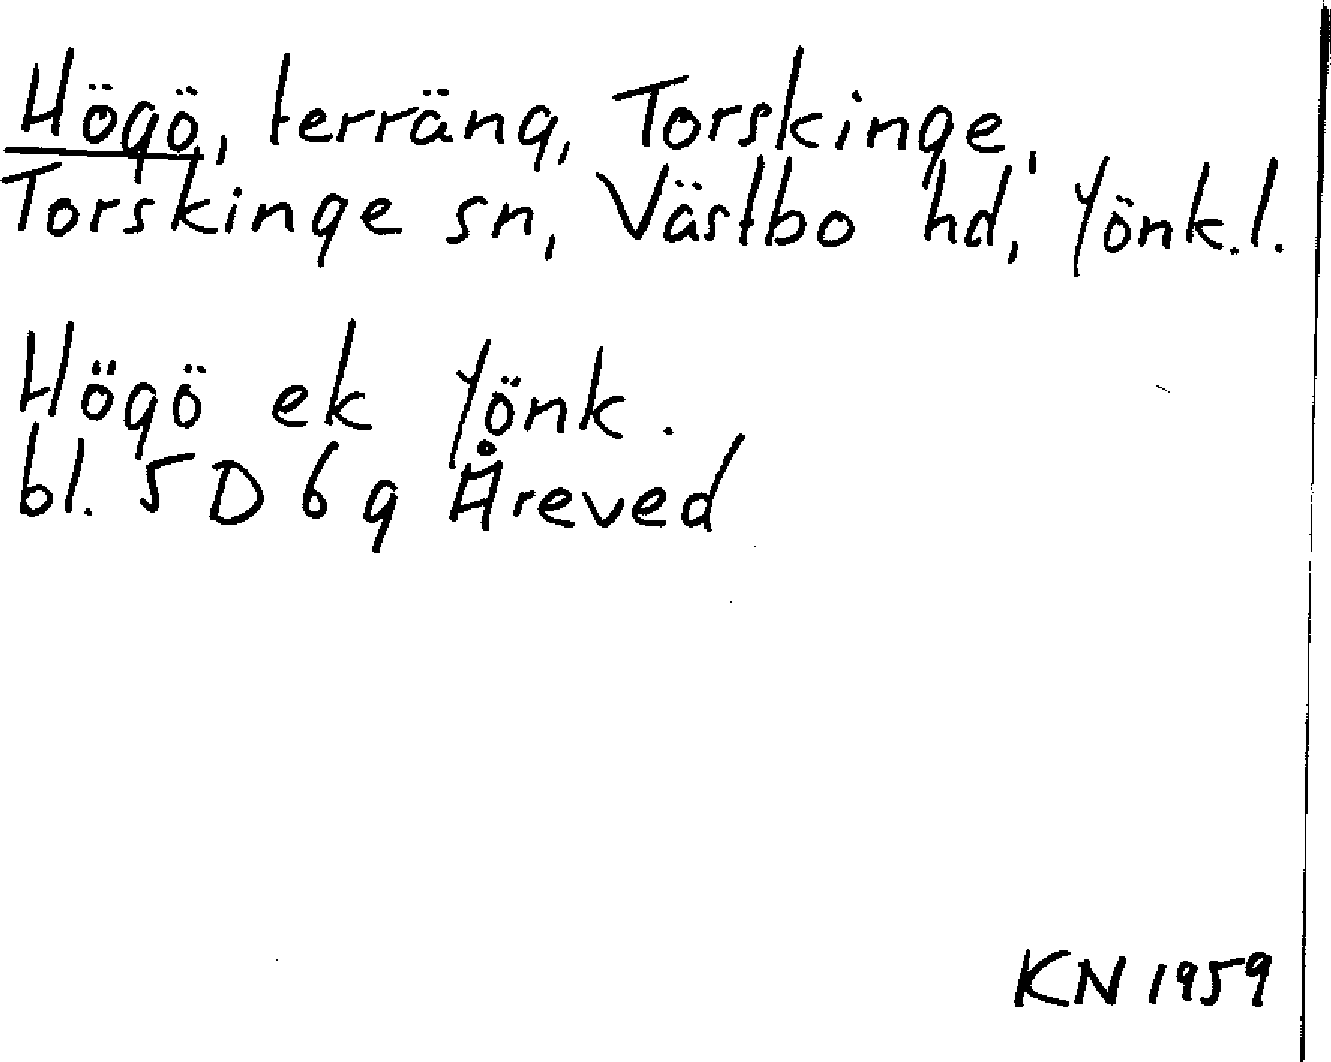 Högö, terräng, Torskinge,
Torskinge sn, Västbo hd, Jönk.l.
Högö ek Jönk.
bl. 5 D 6 g Åreved
KN 1959